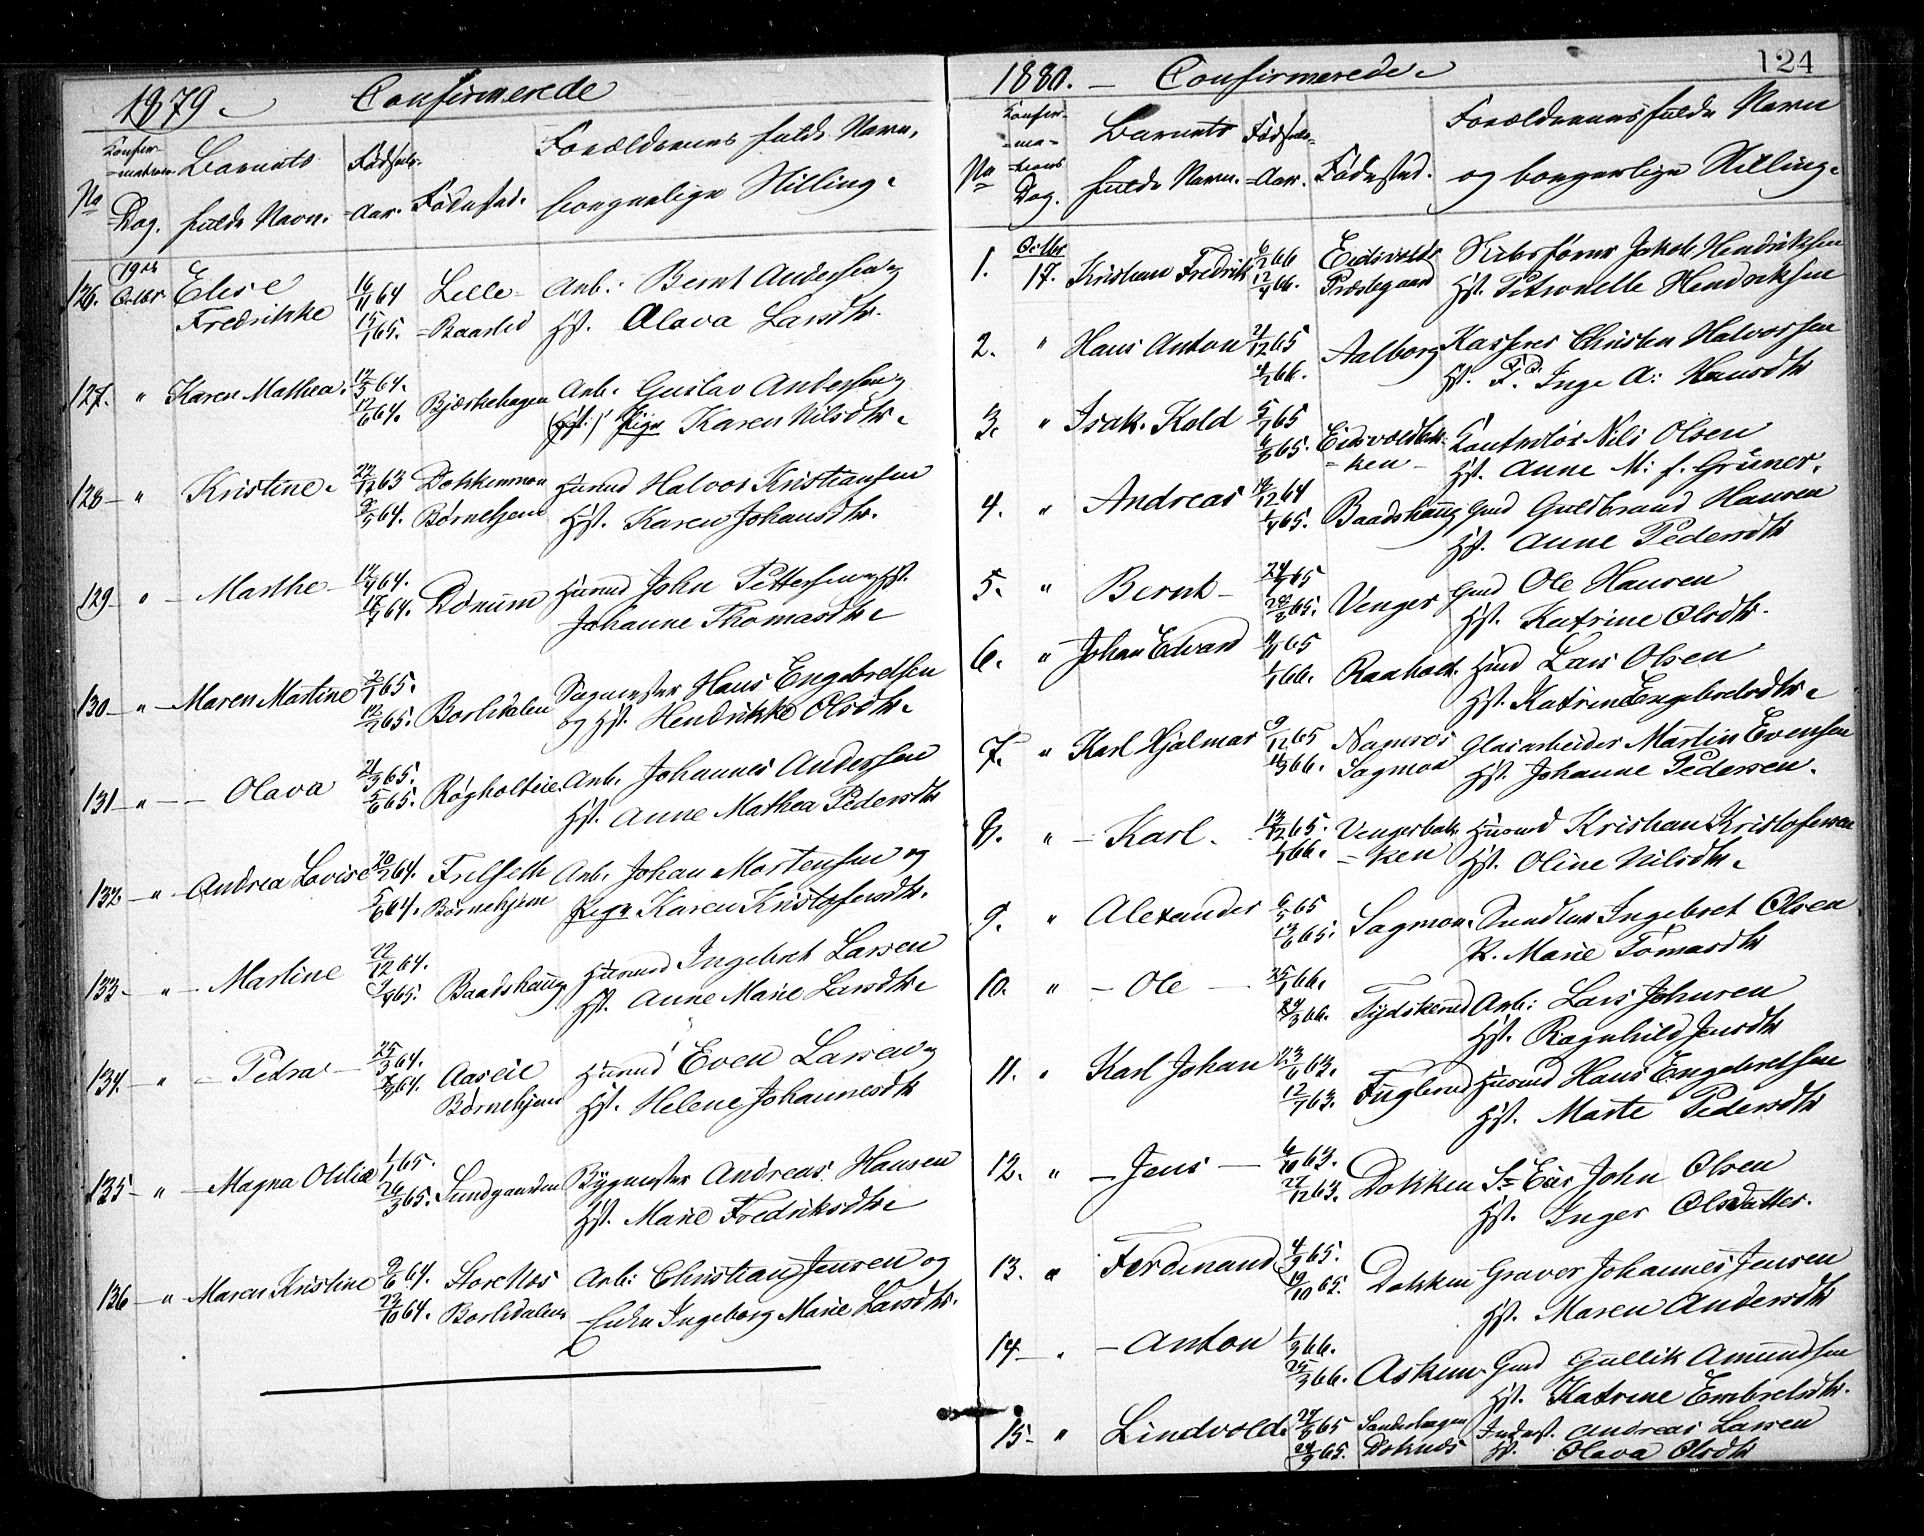 1879. Confirmerede
Konfir-
mations
No Dag. Barnets fulde Navn. Fødsels-Aar. Fødested. Forældrenes fulde Navn, borgerlige Stilling.
126. 19de Octbr Elise 16/11 64 Lille- Arb: Bernt Andersen og
Fredrikke 15/1 65. Raaholt Hst. Olava Larsdtr.
127. " Karen Mathea. 12/3 64. Bjerkehagen Arb. Gustav Andersen og
12/6 64. Pige Karen Nilsdtr.
128 " Kristine. /12 63 Dokkenmoen Husmd Halvor Kristiansen
/5 64. Børnehjem Hst. Karen Johansdtr.
129 " Marthe 12/4 64. Dønum Husmd John Pettersen og Hst.
17/7 64. Johanne Thomasdtr.
130 " Maren Martine 2/1 65. Sagmester Hans Engebretsen
12/2 65. Borlidalen og Hst. Hendrikke Olsdtr.
131 " Olava 21/3 65. Arb. Johannes Andersen
5/6 65. Røgholteie Hst. Anne Mathea Pedersdtr
132 " Andrea Lovise 20/2 64. Frilseth Arb. Johan Mortensen og
5/6 64. Børnehjem Pige Karen Kristofersdtr.
133 " Martine 22/12 64. Husmd Ingebret Larsen
/4 65. Baadshaug Hst. Anne Marie Larsdtr.
134 " Petra 25/3 64. Aaseie Husmd Even Larsen og
64. Børnehjem Hst. Helene Johannesdtr
135 " Magna Otilia 1/1 65. Bygmester Andreas Hansen
26/3 65. Sundgaarden Hst. Marie Fredriksdtr.
136 " Maren Kristine 9/6 64. Store Næs Arb: Christian Jensen og
23/10 64. Borlidalen Enke Ingeborg Marie Larsdtr.
1880. Confirmerede. 124
Konfir-
ma-
tions
No Dag. Barnets fulde Navn. Fødsels-Aar. Fødested. Forældrenes fulde Navn og borgerlige Stilling.
1. Octbr 17. Kristian Fredrik 6/2 66 Eidsvolds Skibsfører Jakob Hendriksen
12/4 66. Præstegaard Hst. Petronelle Hendriksen
2. " Hans Anton 21/12 65 Aalborg Kasserer Christen Halvorsen
4/2 66. Hst. F. D. Inge A: Hansdtr
3. " Isak Kold 5/7 65 Eidsvoldbak- Kontrolør Nils Olsen
6/8 65. ken Hst. Anne M: f. Grüner.
4. " Andreas 18/12 64 Baadshaug Gmd Guldbrand Hansen
/4 65. Hst. Anne Pedersdtr
5. " Bernt 24/7 65 Venger Gmd Ole Hansen
28/8 65. Hst. Katrine Olsdtr.
6. " Johan Edvard 11/11 65 Raaholt Hmd Lars Olsen
1/1 66. Hst. Katrine Engebretsdtr.
7. " Karl Hjalmar 9/12 65 Næmoes Glasarbeider Martin Evensen
11/3 66. Sagmoen Hst. Johanne Pedersen.
8. " Karl. 13/12 65. Vengerbak- Husmd Kristian Kristofersen
1/1 66. ken Hst. Oline Nilsdtr.
9. " Alexander 6/5 65 Sagmoen Ingebret Olsen
13/6 65. K. Marie Tomasdtr
10. " Ole 25/1 66. Tydskerud Arb: Lars Johnsen
24/3 66. Hst. Ragnhild Jensdtr
11. " Karl Johan 23/6 63. Fuglerud Husmd Hans Engebretsen
12/7 63. Hst. Marte Pedersdtr
12. " Jens 6/10 63. Dokken S= Eier John Olsen
27/12 63. Hst. Inger Olsdatter.
13. " Ferdinand 4/9 65. Dokken Graver Johannes Jensen
19/10 65. Hst. Maren Andersdtr
14 " Anton 1/3 66. Asken Gmd Gullik Amundsen
25/3 66. Hst. Katrine Embretsdtr.
15. " Lindvold. 27/8 65 Sanderhagen Inderst. Andreas Larsen
24/9 65. Doknæs Hst. Olava Olsdtr